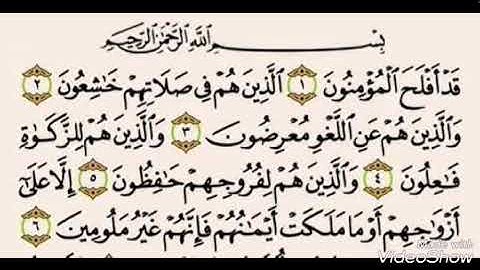 بِسْمِ ٱللَّهِ ٱلرَّحْمَٰنِ ٱلرَّحِيمِ
قَدْ أَفْلَحَ ٱلْمُؤْمِنُونَ ١ ٱلَّذِينَ هُمْ فِى صَلَاتِهِمْ خَٰشِعُونَ ٢
وَٱلَّذِينَ هُمْ عَنِ ٱللَّغْوِ مُعْرِضُونَ ٣ وَٱلَّذِينَ هُمْ لِلزَّكَوٰةِ
فَٰعِلُونَ ٤ وَٱلَّذِينَ هُمْ لِفُرُوجِهِمْ حَٰفِظُونَ ٥ إِلَّا عَلَىٰٓ
أَزْوَٰجِهِمْ أَوْ مَا مَلَكَتْ أَيْمَٰنُهُمْ فَإِنَّهُمْ غَيْرُ مَلُومِينَ ٦
Made with
VideoShow